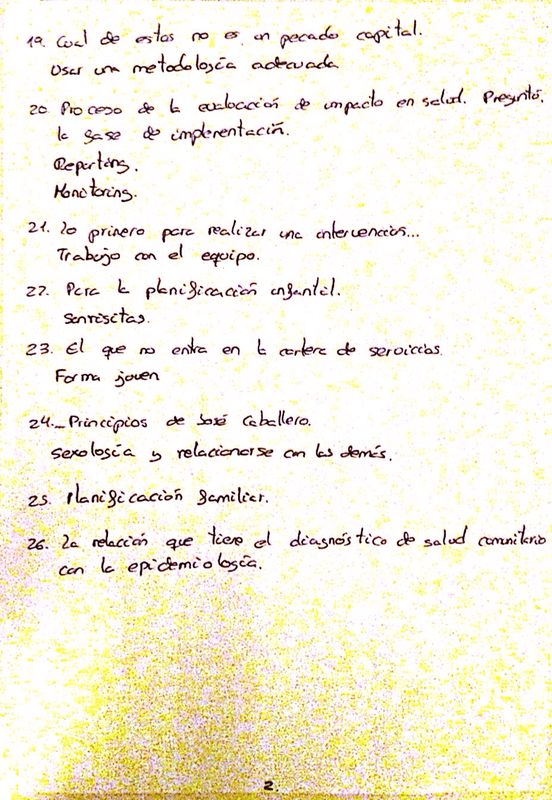 19. Cual de estos no es un pecado capital.
Usar una metodología adecuada
20 Proceso de la evaluación de impacto en salud. Preguntó.
la fase de implementación.
Reporting.
Monitoring.
21. Lo primero para realizar una intervención...
Trabajo con el equipo.
22. Para la planificación infantil.
Sonrisitas.
23. El que no entra en la cartera de servicios.
Forma joven
24._ Principios de José Caballero.
Sexología y relacionarse con los demás.
25. Planificación familiar.
26. La relación que tiene el diagnóstico de salud comunitario
con la epidemiología.
2